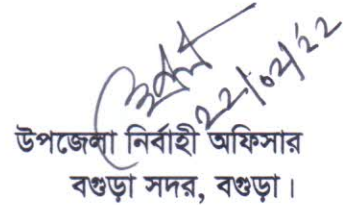 ২২/০২/২২
উপজেলা নির্বাহী অফিসার
বগুড়া সদর, বগুড়া।